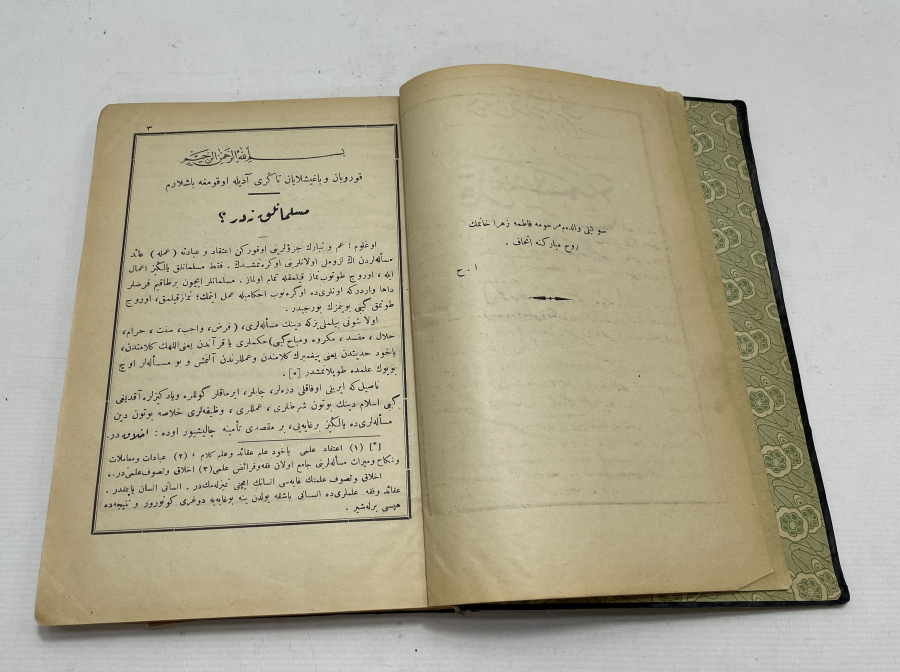 سوكيلى والدەم مرحومه فاطمه زهرا خانمك
روح مباركنه اتحاف .
ا . ح
٣
بسم الله الرحمن الرحيم
قورويان و باغيشلايان تاڭرى آديله اوقومغه باشلارم
مسلمانلق نه‌در ؟
اوغلوم ! عم و تبارك جزؤلرينى اوقوركن اعتقاد و عبادته (عمله) عائد
مسأله‌لردن اڭ لزوملى اولانلرينى اوكرەنمشدك . فقط مسلمانلق يالڭيز اعمال
ايله ، اوروج طوتوب نماز قيلمقله تمام اولماز . مسلمانلر ايچون برطاقيم فرضلر
داها واردركه اونلرى‌ده اوكرەنوب احكاميله عمل ايتمك؛ نماز قيلمق ، اوروج
طوتمق كبى بوينمزك بورجيدر .
اولا شونى بيلملى‌يزكه دينك مسأله‌لرى، ( فرض ، واجب ، سنت ، حرام ،
حلال ، مفسد ، مكروه ومباح كبى) حكملرى يا قرآندن يعنى اللهك كلامندن،
ياخود حديثدن يعنى پيغمبرك كلامندن وعمللرندن آلنمش و بو مسأله‌لر اوچ
بويوك علمده طوپلانمشدر [*] .
ناصيل‌كه ايريلى اوفاقلى دره‌لر، چايلر، ايرماقلر كوللره وياد‌كيزلره آقديغى
كبى اسلام دينك بوتون شرطلرى ، عمللرى ، وظيفه‌لرى خلاصه بوتون دين
مسأله‌لرى‌ده يالڭيز برغايه‌يى، بر مقصدى تأمينه چاليشيور اوده : اخلاق در.
[*] (١) اعتقاد علمى ياخود علم عقائد وعلم كلام ، (٢) عبادات ومعاملات
ونكاح وميراث مسأله‌لرينى جامع اولان فقه وفرائض علمى (٣) اخلاق وتصوف علمى‌در .
اخلاق وتصوف علمنك غايه‌سى انسانك ايچنى تميزله‌مك‌در . انسانى انسان ياپمقدر .
عقائد وفقه علملرى‌ده انسانى باشقه يولدن ينه بوغايه‌يه دوغرى كوتورور و نتيجه‌ده
هپسى برله‌شير .